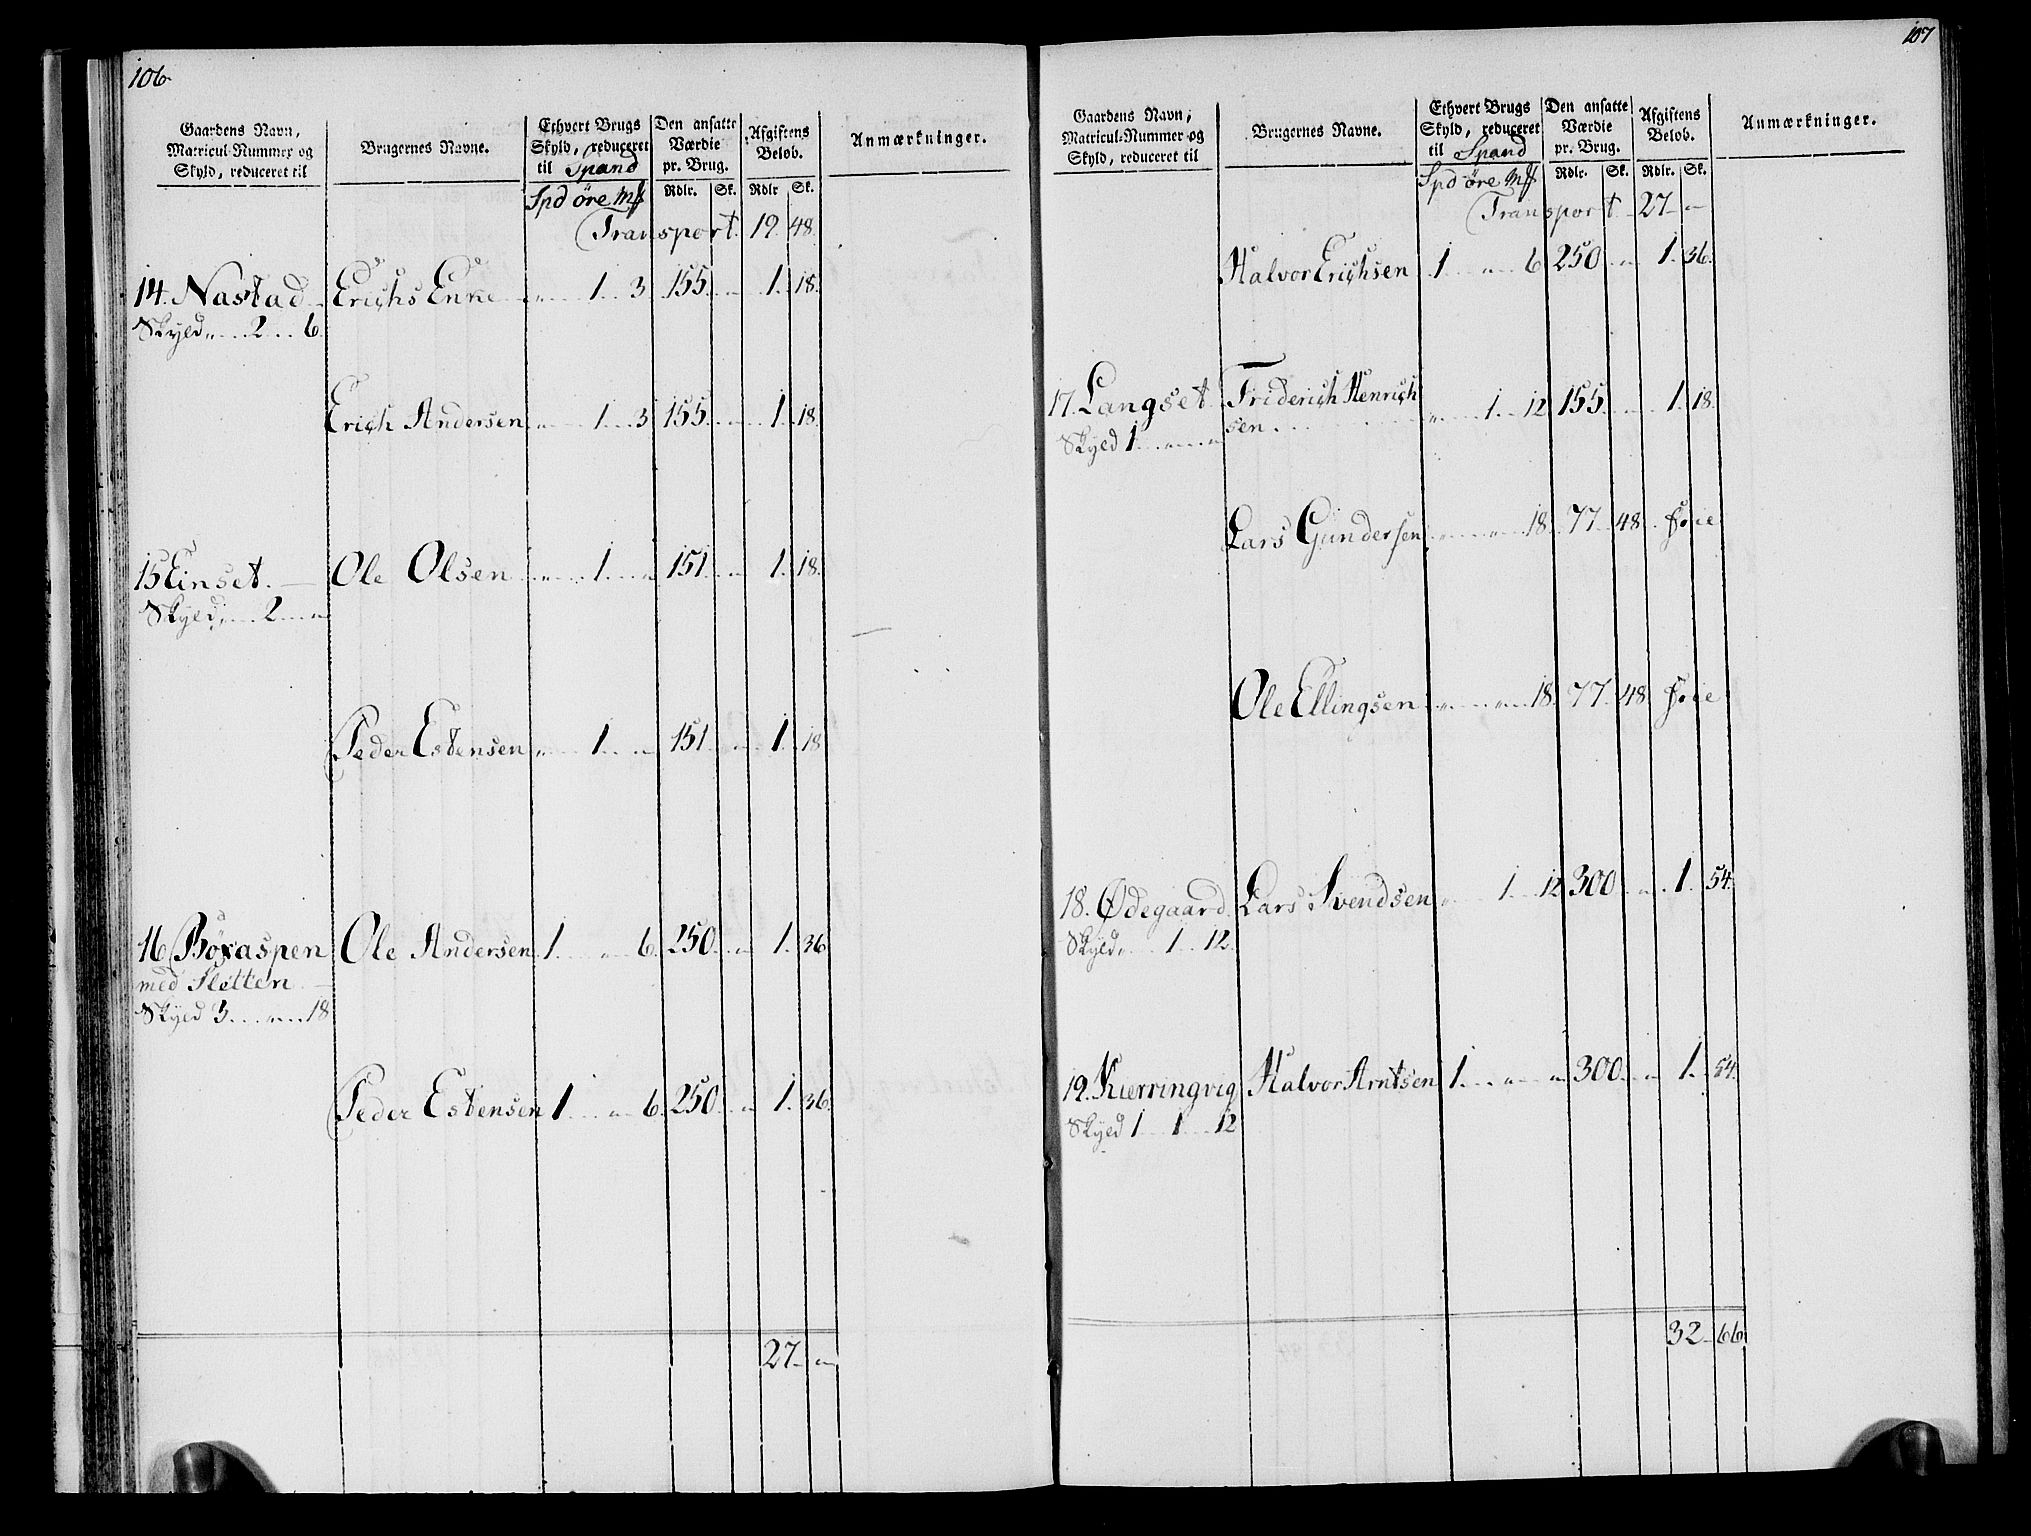 106
Gaardens Navn, Matricul-Nummer og Skyld, reduceret til | Brugernes Navne. | Ethvert Brugs Skyld, reduceret til Spand | Den ansatte Værdie pr. Brug. | Afgiftens Beløb. | Anmærkninger.
Spd öre Mk | Rdlr. | Sk. | Rdlr | Sk.
Transport. 19. 48.
14. Nastad Erichs Enke „ 1 3 155 „ 1. 18.
Skyld „ 2 6.
Erich Andersen „ 1 3 155 „ 1 18.
15 Einset. Ole Olsen „ 1 „ 151 „ 1. 18.
Skyld „ 2 „
Peder Estensen „ 1 „ 151 „ 1 18
16 Böxaspen Ole Andersen 1 „ 6. 250 „ 1. 36
med Sletten
Skyld 3 „ 18
Peder Estensen 1 „ 6. 250 „ 1. 36.
27 „
107
Gaardens Navn, Matricul-Nummer og Skyld, reduceret til | Brugernes Navne. | Ethvert Brugs Skyld, reduceret til Spand | Den ansatte Værdie pr. Brug. | Afgiftens Beløb. | Anmærkninger.
Spd öre Mk | Rdlr. | Sk. | Rdlr. | Sk.
Transport 27 „
Halvor Erichsen 1 „ 6 250 „ 1. 36.
17. Langset Friderich Henrich
sen „ 1 12 155 „ 1. 18.
Skyld 1 „ „
Lars Gundersen „ „ 18. 77 48 frie
Ole Ellingsen „ „ 18. 77 48 frie
18. Ødegaard Lars Svendsen „ 1 12 300 „ 1. 54.
Skyld „ 1 12.
19. Kierringvig Halvor Arntsen 1 „ „ 300 „ 1. 54.
Skyld 1 1 12
32 66.